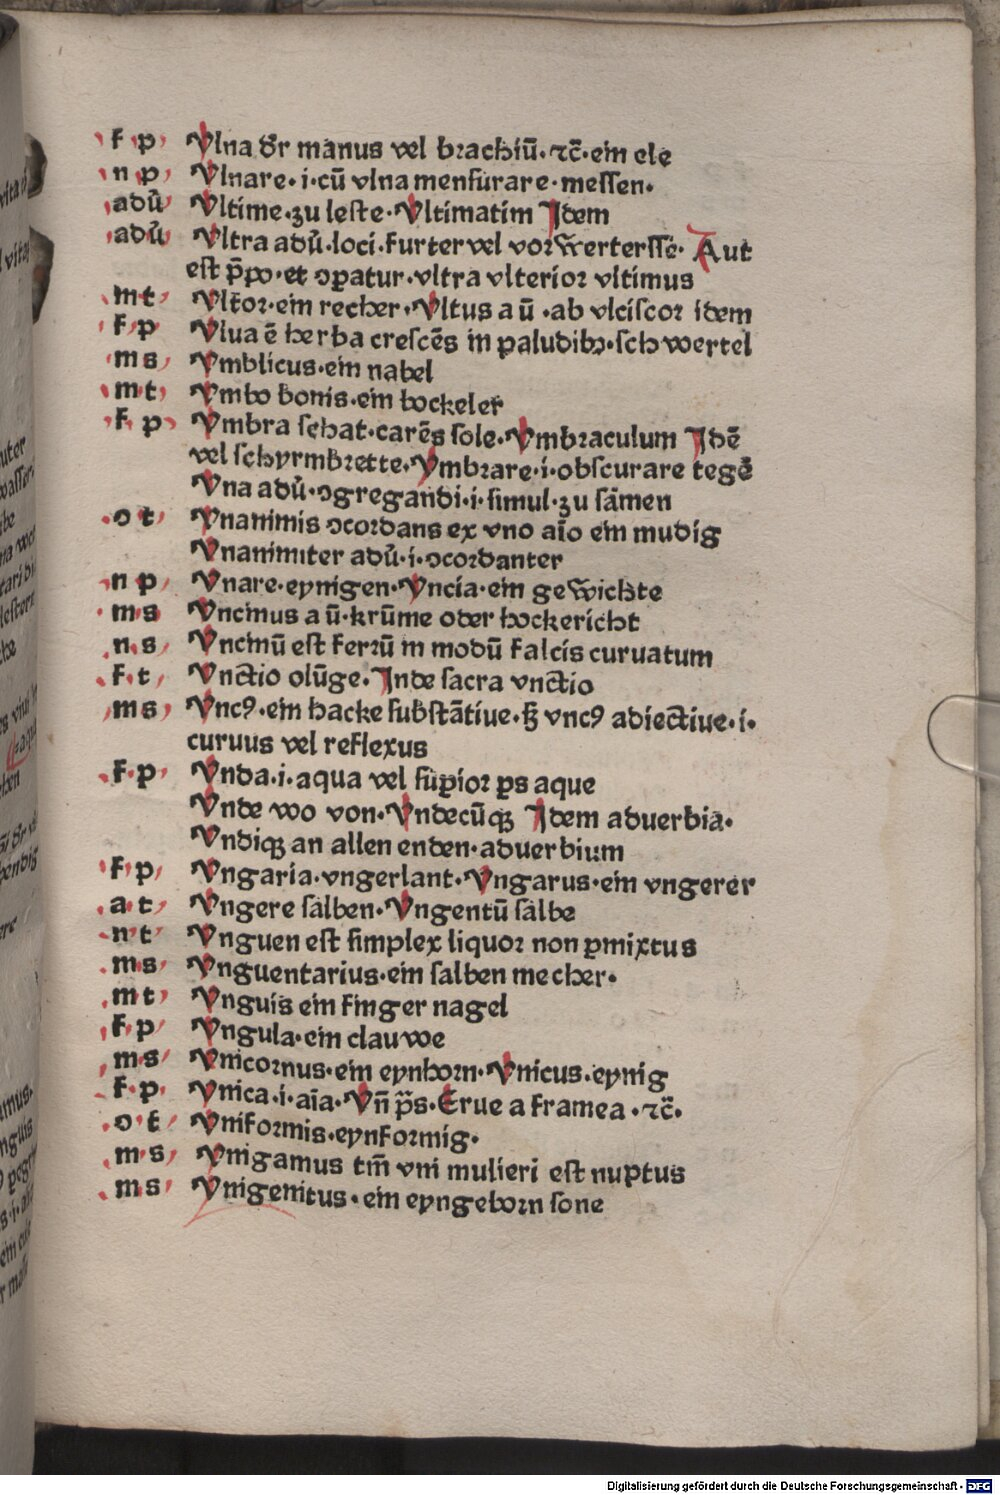 f p Vlna dr̄ manus vel brachiū· ⁊c̄·ein ele
n p Vlnare·i·cū vlna mensurare·messen·
adū Vltime·zu leste·Vltimatim Idem
adū Vltra adū·loci·furter vel vorw̄ertersſē· Aut
est p̄po·et ꝯꝑatur·vltra vlterior vltimus
m t Vlt̄or·ein recher·Vltus a ū·ab vlciscor idem
f p Vlua ē herba crescēs in paludibꝫ·schwertel
m s Vmblicus·ein nabel
m t Vmbo bonis·ein bockeler
f p Vmbra schat·carēs sole·Vmbraculum Idē
vel schyrmbrette·Vmbrare·i·obscurare tegē
Vna adū·ꝯgregandi·i·simul·zu sāmen
o t Vnanimis ꝯcordans ex vno aīo ein mudig
Vnanimiter adū·i·ꝯcordanter
n p Vnare·eynigen·Vncia·ein gewichte
m s Vncinus a ū·krūme oder hockericht
n s Vncinū est ferrū in modū falcis curuatum
f t Vnctio olūge·Inde sacra vnctio
m s Vncꝰ·ein hacke substātiue·ꝫ vncꝰ adiectiue·i·
curuus vel reflexus
f p Vnda·i·aqua vel suꝑior ꝑs aque
Vnde wo von·Vndecūqꝫ Idem aduerbia·
Vndiqꝫ an allen enden·aduerbium
f p Vngaria·vngerlant·Vngarus·ein vngerer
a t Vngere salben·Vngentū salbe
n t Vnguen est simplex liquor non ꝑmixtus
m s Vnguentarius·ein salben mecher·
m t Vnguis ein finger nagel
f p Vngula·ein clauwe
m s Vnicornus·ein eynhorn·Vnicus·eynig
f p Vnica·i·aīa·Vn̄ p̄s·Erue a framea·⁊c̄·
o t Vniformis·eynformig·
m s Vnigamus tm̄ vni mulieri est nuptus
m s Vnigenitus·ein eyngeborn sone
Digitalisierung gefördert durch die Deutsche Forschungsgemeinschaft - DFG